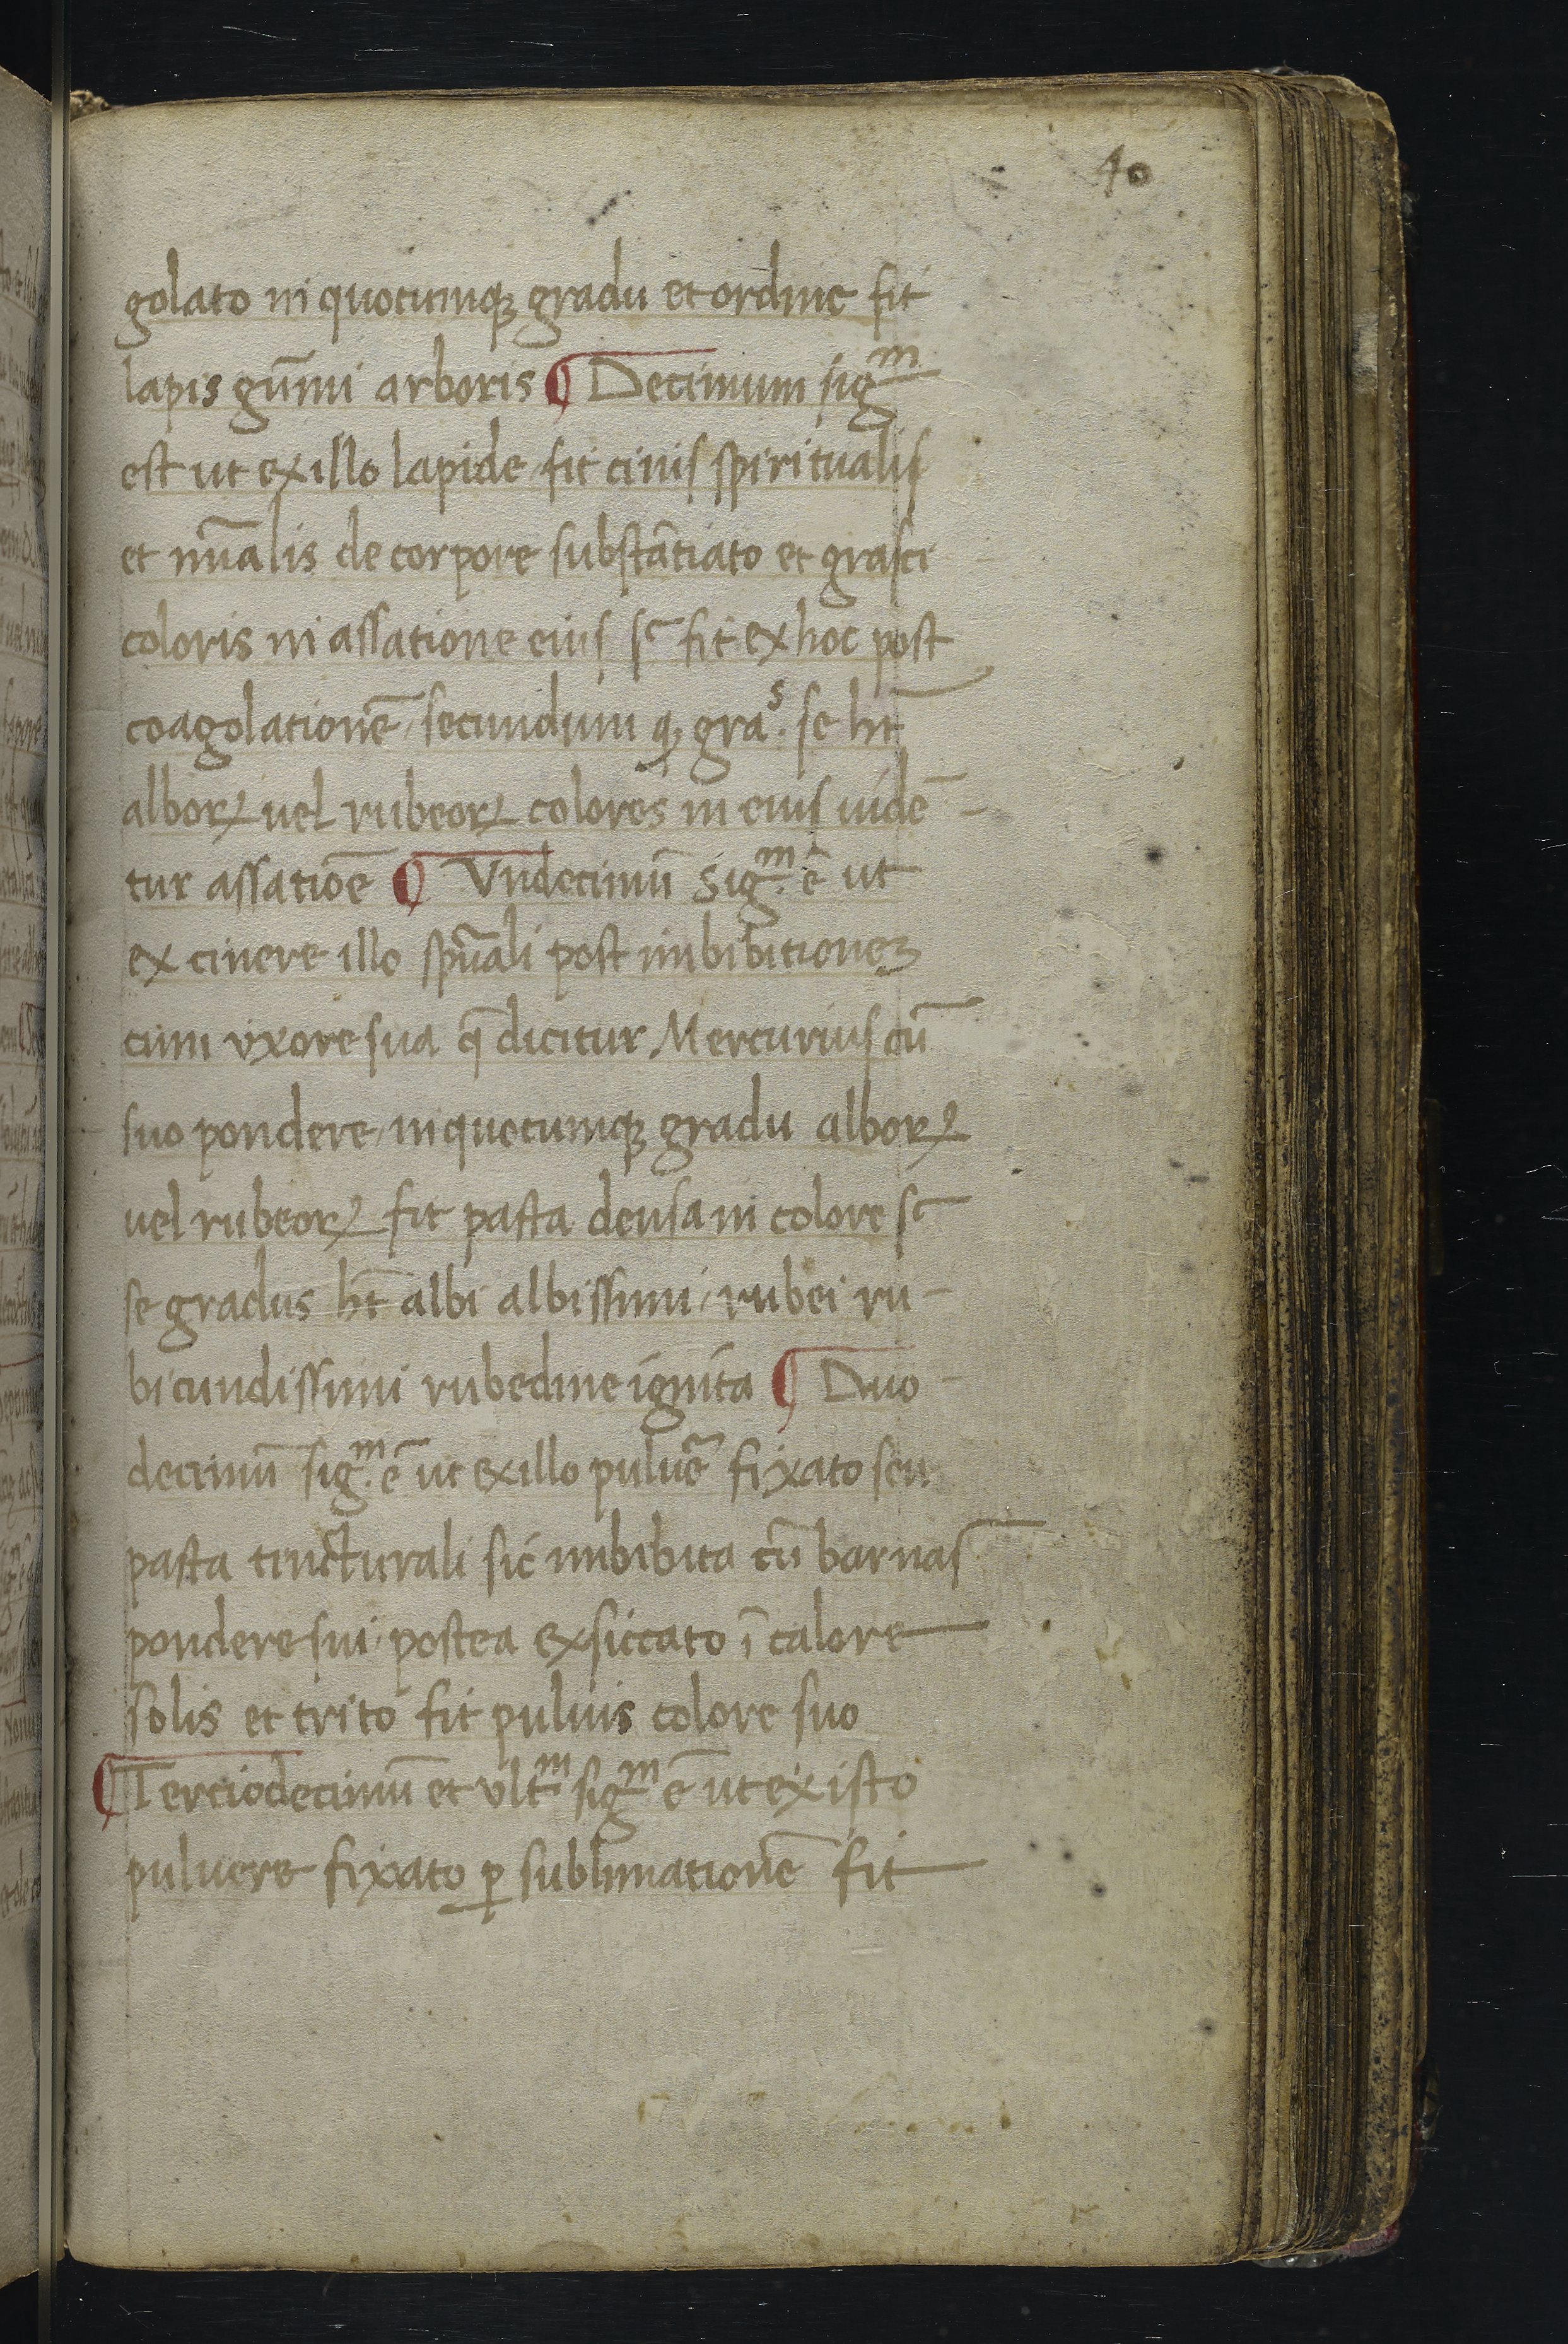 40
golato in quocumqȝ gradu et ordine fit
lapis gūmi arboris ¶ Decimum sigᵐ
est ut ex illo lapide fit cinis spiritualis
et nūalis de corpore substātiato et grasci
coloris in assatione eius sc̄ fit ex hoc post
coagolationē / secundum qȝ graˢ. se ht̄
alboꝝ vel rubeoꝝ colores in eius uidē-
tur assatiōe ¶ Vndecimū sigᵐ. ē ut
ex cinere illo spūali post imbibitionez
cum vxore sua q̄ dicitur Mercurius cū
suo pondere / in quocumqȝ gradu alboꝝ
uel rubeoꝝ fit pasta densa in colore sc̄
se gradus ht̄ albi albissimi / rubei ru-
bicundissimi rubedine ignita ¶ Duo-
decimū sigᵐ. ē ut ex illo puluē fixato seu
pasta tincturali sic imbibita cū barnas
pondere sui / postea exsiccato ī calore
solis et trito fit puluis colore suo
¶ Terciodecimū et vltᵐ sigᵐ ē ut ex isto
puluere fixato ꝑ sublimationē fit